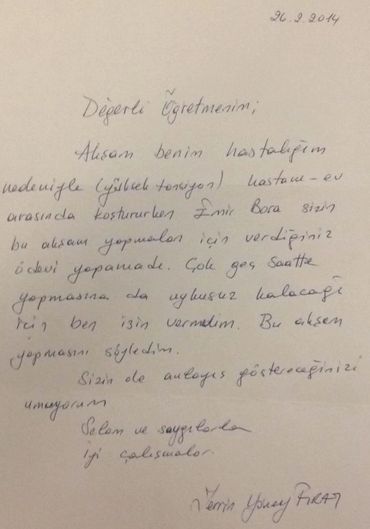 26.2.2014
Değerli Öğretmenim;
Akşam benim hastalığım
nedeniyle (yüksek tansiyon) hastane-ev
arasında koştururken Emir Bora sizin
bu akşam yapmaları için verdiğiniz
ödevi yapamadı. Çok geç saatte
yapmasına da uykusuz kalacağı
için ben izin vermedim. Bu akşam
yapmasını söyledim.
Sizin de anlayış göstereceğinizi
umuyorum
Selam ve saygılarla
iyi çalışmalar
FIRAT